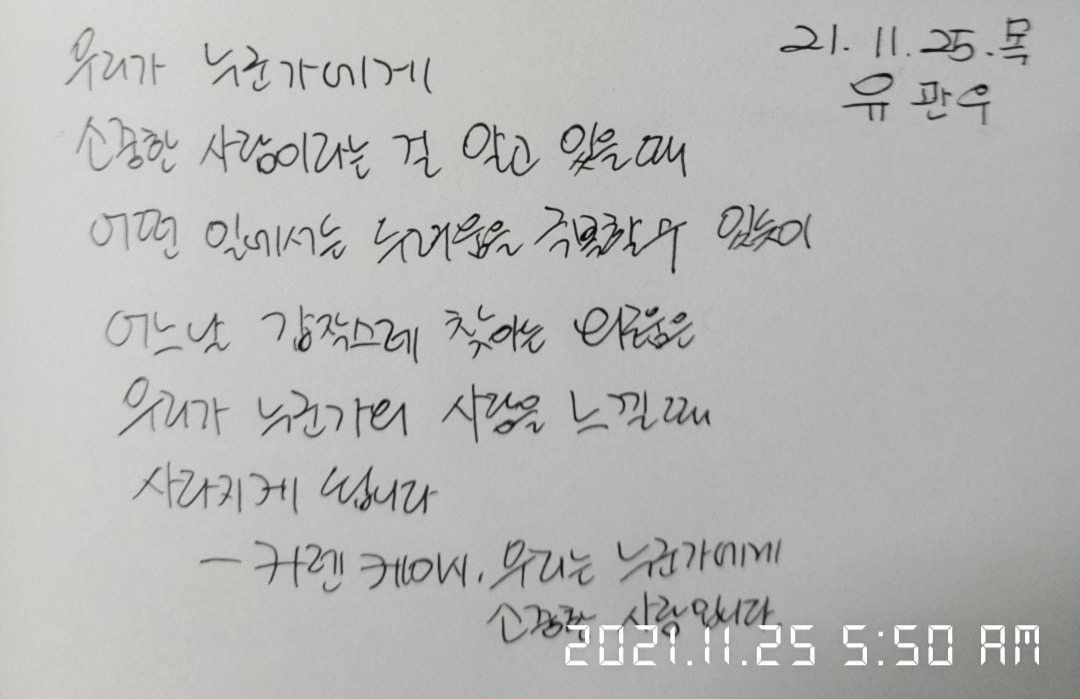 21. 11. 25. 목
유 관우
우리가 누군가에게
소중한 사람이라는 걸 알고 있을때
어떤 일에서는 두려움을 극복할수 있듯이
어느날 갑작스레 찾아는 외로움은
우리가 누군가의 사랑을 느낄때
사라지게 됩니다
- 커렌 케이시. 우리는 누군가에게
소중한 사람입니다.
2021.11.25 5:50 AM